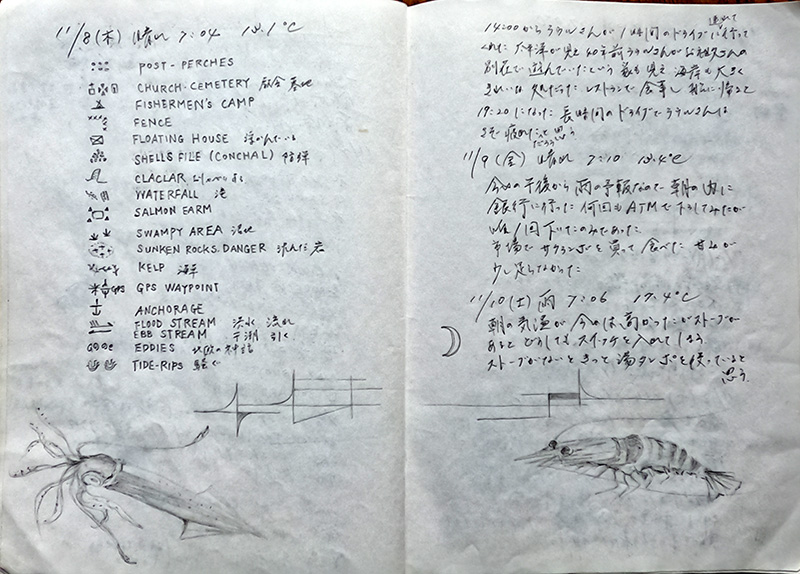 11/8(木) 晴れ 7:04 12.1°C
POST-PERCHES
CHURCH-CEMETERY 墓地
FISHERMEN'S CAMP
FENCE
FLOATING HOUSE 浮かんでいる
SHELLS FILE (CONCHAL) 防弾
CLACLAR
WATERFALL 滝
SALMON FARM
SWAMPY AREA 湿地
SUNKEN ROCKS. DANGER 沈んだ岩
KELP 海草
GPS GPS WAYPOINT
ANCHORAGE
FLOOD STREAM 洪水 流れ
EBB STREAM 干潮 引く
EDDIES 北欧の神話
TIDE-RIPS 騒ぐ
14:00から ラウルさんが 1時間のドライブに連れて行って
くれた 太平洋が見え 40年前ラウルさんがお祖父さんの
別荘で遊んでいたという 見え 海岸も大きく
きれいな 処だった レストランで食事し 帰って
19:20になった 長時間のドライブでラウルさんは
さぞ疲れただろうと思う
11/9(金) 晴れ 7:10 12.4°C
今日の午後から雨の予報なので 朝の内に
銀行に行った 何回もATMで下ろしてみたが
唯1回下りたのみであった
市場でサクランボを買って食べた 甘みが
少し足らなかった
11/10(土) 雨 7:06 17.4°C
朝の気温が今日は高かったがストーブが
あると どうしてもスイッチを入れてしまう
ストーブがないときっと湯タンポを使っていると
思う